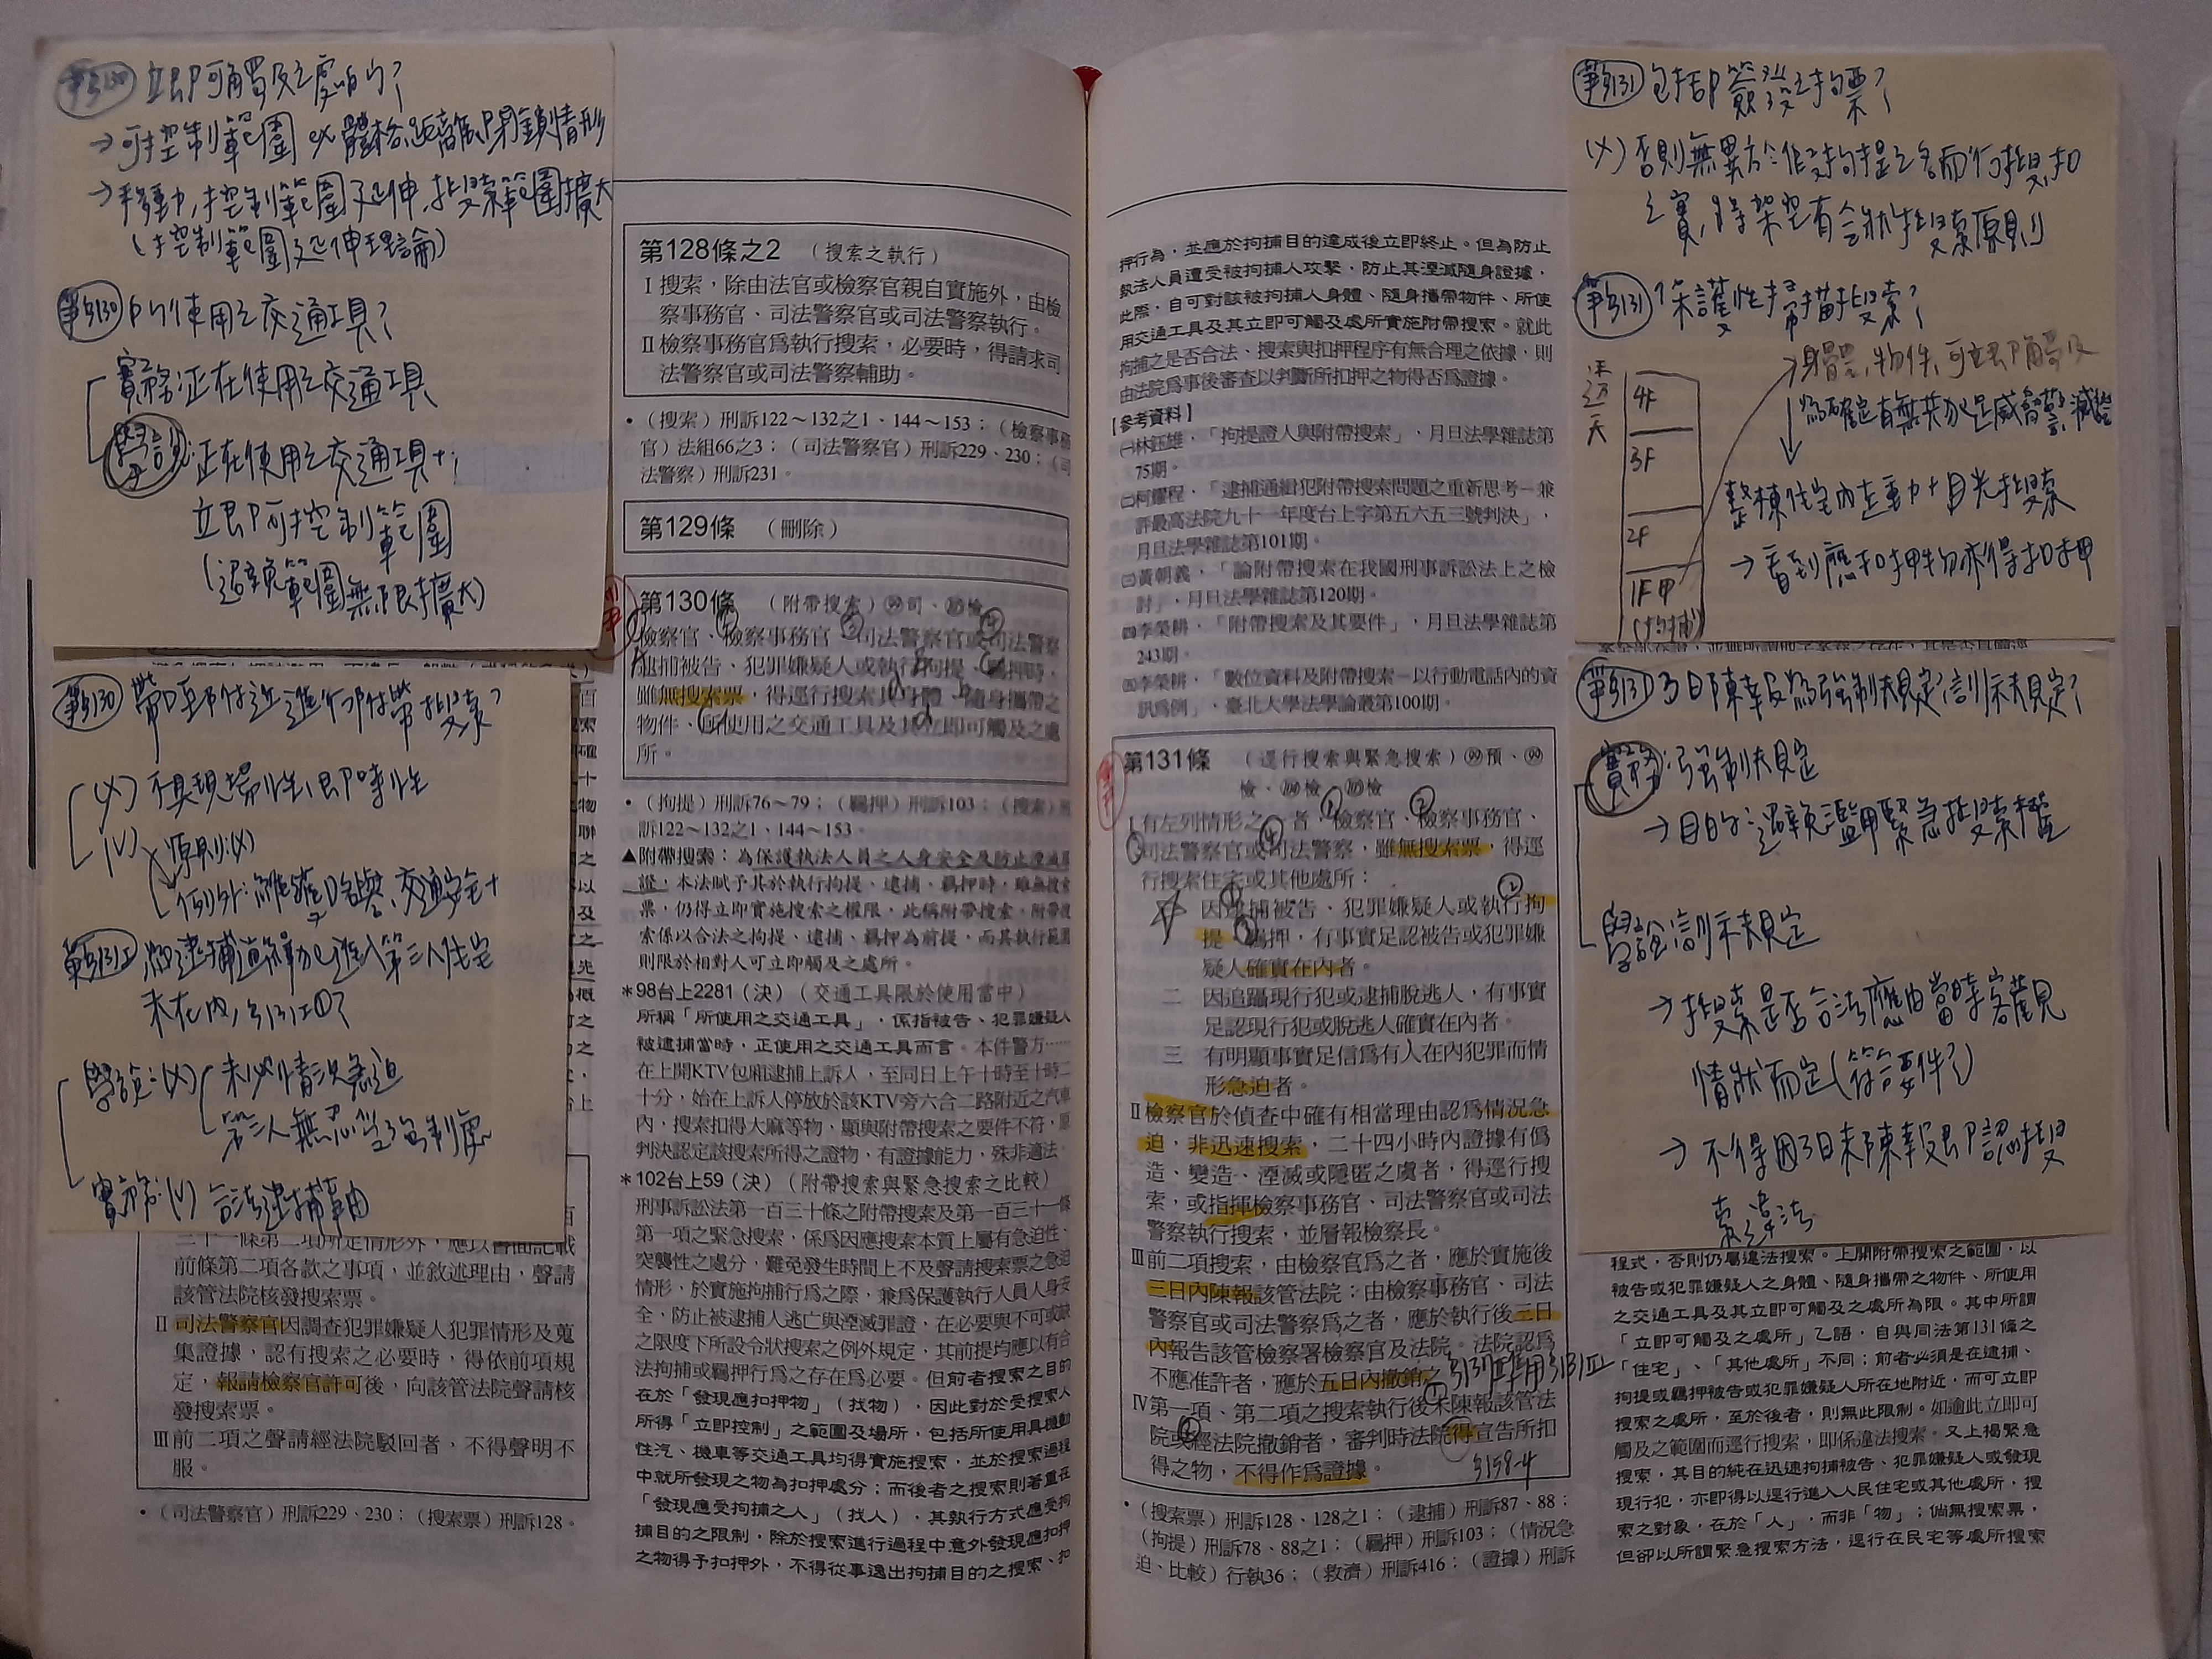 爭§130 立即可觸及之處所？
→可控制範圍 ex體格、距離、閉鎖情形
→移動,控制範圍延伸,搜索範圍擴大
(控制範圍延伸理論)
爭§130 所使用之交通工具？
實務:正在使用之交通工具
學說:正在使用之交通工具+
立即可控制範圍
(避免範圍無限擴大)
爭§130 帶回邸附近進行附帶搜索？
(X) 不具現場性、即時性
(V) 原則:(X)
例外:
爭§131I 為逮捕通緝犯進入第三人住宅
未在內,§131I①？
學說:(X) 未必情況急迫
第三人無忍受強制處
實務:(V) 合法逮捕事由
二十一條第二項所定情形外，應以書面記載
前條第二項各款之事項，並敘述理由，聲請
該管法院核發搜索票。
Ⅱ司法警察官因調查犯罪嫌疑人犯罪情形及蒐
集證據，認有搜索之必要時，得依前項規
定，報請檢察官許可後，向該管法院聲請核
發搜索票。
Ⅲ前二項之聲請經法院駁回者，不得聲明不
服。
•（司法警察官）刑訴229、230；（搜索票）刑訴128。
第128條之2 （搜索之執行）
Ⅰ搜索，除由法官或檢察官親自實施外，由檢
察事務官、司法警察官或司法警察執行。
Ⅱ檢察事務官爲執行搜索，必要時，得請求司
法警察官或司法警察輔助。
•（搜索）刑訴122～132之1、144～153；（檢察事務
官）法組66之3；（司法警察官）刑訴229、230；（司
法警察）刑訴231。
第129條 （刪除）
第130條 （附帶搜索）99司、
檢察官、檢察事務官、司法警察官或司法警察
逮捕被告、犯罪嫌疑人或執行拘提、羈押時，
雖無搜索票，得逕行搜索其身體、隨身攜帶之
物件、所使用之交通工具及其立即可觸及之處
所。
•（拘提）刑訴76～79；（羈押）刑訴103；（搜索）刑
訴122～132之1、144～153。
▲附帶搜索：為保護執法人員之人身安全及防止湮滅罪
證，本法賦予其於執行拘提、逮捕、羈押時，雖無搜索
票，仍得立即實施搜索之權限，此稱附帶搜索。附帶搜
索係以合法之拘提、逮捕、羈押為前提，而其執行範圍
則限於相對人可立即觸及之處所。
＊98台上2281（決）（交通工具限於使用當中）
所稱「所使用之交通工具」，係指被告、犯罪嫌疑人
被逮捕當時，正使用之交通工具而言。本件警方……
在上開KTV包廂逮捕上訴人，至同日上午十時至十時二
十分，始在上訴人停放於該KTV旁六合二路附近之汽車
內，搜索扣得大麻等物，顯與附帶搜索之要件不符，原
判決認定該搜索所得之證物，有證據能力，殊非適法。
＊102台上59（決）（附帶搜索與緊急搜索之比較）
刑事訴訟法第一百三十條之附帶搜索及第一百三十一條
第一項之緊急搜索，係爲因應搜索本質上屬有急迫性、
突襲性之處分，難免發生時間上不及聲請搜索票之急迫
情形，於實施拘捕行爲之際，兼爲保護執行人員人身安
全，防止被逮捕人逃亡與湮滅罪證，在必要與不可或缺
之限度下所設令狀搜索之例外規定，其前提均應以有合
法拘捕或羈押行爲之存在爲必要。但前者搜索之目的
在於「發現應扣押物」（找物），因此對於受搜索人
所得「立即控制」之範圍及場所，包括所使用具機動
性汽、機車等交通工具均得實施搜索，並於搜索過程
中就所發現之物為扣押處分；而後者之搜索則著重在
「發現應受拘捕之人」（找人），其執行方式應受拘
捕目的之限制，除於搜索進行過程中意外發現應扣押
之物得予扣押外，不得從事逸出拘捕目的之搜索、扣
押行為，並應於拘捕目的達成後立即終止。但為防止
執法人員遭受被拘捕人攻擊，防止其湮滅隨身證據，
此際，自可對該被拘捕人身體、隨身攜帶物件、所使
用交通工具及其立即可觸及處所實施附帶搜索。就此
拘捕之是否合法、搜索與扣押程序有無合理之依據，則
由法院爲事後審查以判斷所扣押之物得否爲證據。
【參考資料】
㈠林鈺雄，「拘提證人與附帶搜索」，月旦法學雜誌第
75期。
㈡柯耀程，「逮捕通緝犯附帶搜索問題之重新思考－兼
評最高法院九十一年度台上字第五六五三號判決」，
月旦法學雜誌第101期。
㈢黃朝義，「論附帶搜索在我國刑事訴訟法上之檢
討」，月旦法學雜誌第120期。
㈣李榮耕，「附帶搜索及其要件」，月旦法學雜誌第
243期。
㈤李榮耕，「數位資料及附帶搜索－以行動電話內的資
訊爲例」，臺北大學法學論叢第100期。
第131條 （逕行搜索與緊急搜索）99預、99
檢、104檢、105檢
Ⅰ有左列情形之一者，檢察官、檢察事務官、
司法警察官或司法警察，雖無搜索票，得逕
行搜索住宅或其他處所：
一 因逮捕被告、犯罪嫌疑人或執行拘
提、羈押，有事實足認被告或犯罪嫌
疑人確實在內者。
二 因追躡現行犯或逮捕脫逃人，有事實
足認現行犯或脫逃人確實在內者。
三 有明顯事實足信爲有人在內犯罪而情
形急迫者。
Ⅱ檢察官於偵查中確有相當理由認爲情況急
迫，非迅速搜索，二十四小時內證據有僞
造、變造、湮滅或隱匿之虞者，得逕行搜
索，或指揮檢察事務官、司法警察官或司法
警察執行搜索，並層報檢察長。
Ⅲ前二項搜索，由檢察官爲之者，應於實施後
三日內陳報該管法院；由檢察事務官、司法
警察官或司法警察爲之者，應於執行後三日
內報告該管檢察署檢察官及法院。法院認爲
不應准許者，應於五日內撤銷之
Ⅳ第一項、第二項之搜索執行後未陳報該管法
院或經法院撤銷者，審判時法院得宣告所扣
得之物，不得作爲證據。 §158-4
•（搜索票）刑訴128、128之1；（逮捕）刑訴87、88；
（拘提）刑訴78、88之1；（羈押）刑訴103；（情況急
迫、比較）行執36；（救濟）刑訴416；（證據）刑訴
爭§131 包括即簽發之拘票？
(X) 否則無異於:假拘提之名而行搜、扣
之實,將架空有令狀搜索原則
爭§131 保護性掃描搜索？
透天
4F
3F
2F
1F 甲
(拘捕)
→身體、物件、可立即觸及
↓為確定有無共犯足威脅警、滅證
整棟住宅內走動+目光搜索
→看到應扣押物亦得扣押
爭§131 3日陳報為強制規定、訓示規定？
實務:強制規定
→目的:避免濫用緊急搜索權
學說:訓示規定
→搜索是否合法應由當時客觀
情狀而定(符合要件?)
→不得因3日未陳報即認搜
索違法
程式，否則仍屬違法搜索。上開附帶搜索之範圍，以
被告或犯罪嫌疑人之身體、隨身攜帶之物件、所使用
之交通工具及其立即可觸及之處所為限。其中所謂
「立即可觸及之處所」乙語，自與同法第131條之
「住宅」、「其他處所」不同；前者必須是在逮捕、
拘提或羈押被告或犯罪嫌疑人所在地附近，而可立即
搜索之處所，至於後者，則無此限制。如逾此立即可
觸及之範圍而逕行搜索，即係違法搜索。又上揭緊急
搜索，其目的純在迅速拘捕被告、犯罪嫌疑人或發現
現行犯，亦即得以逕行進入人民住宅或其他處所，搜
索之對象，在於「人」，而非「物」；倘無搜索票，
但卻以所謂緊急搜索方法，逕行在民宅等處所搜索